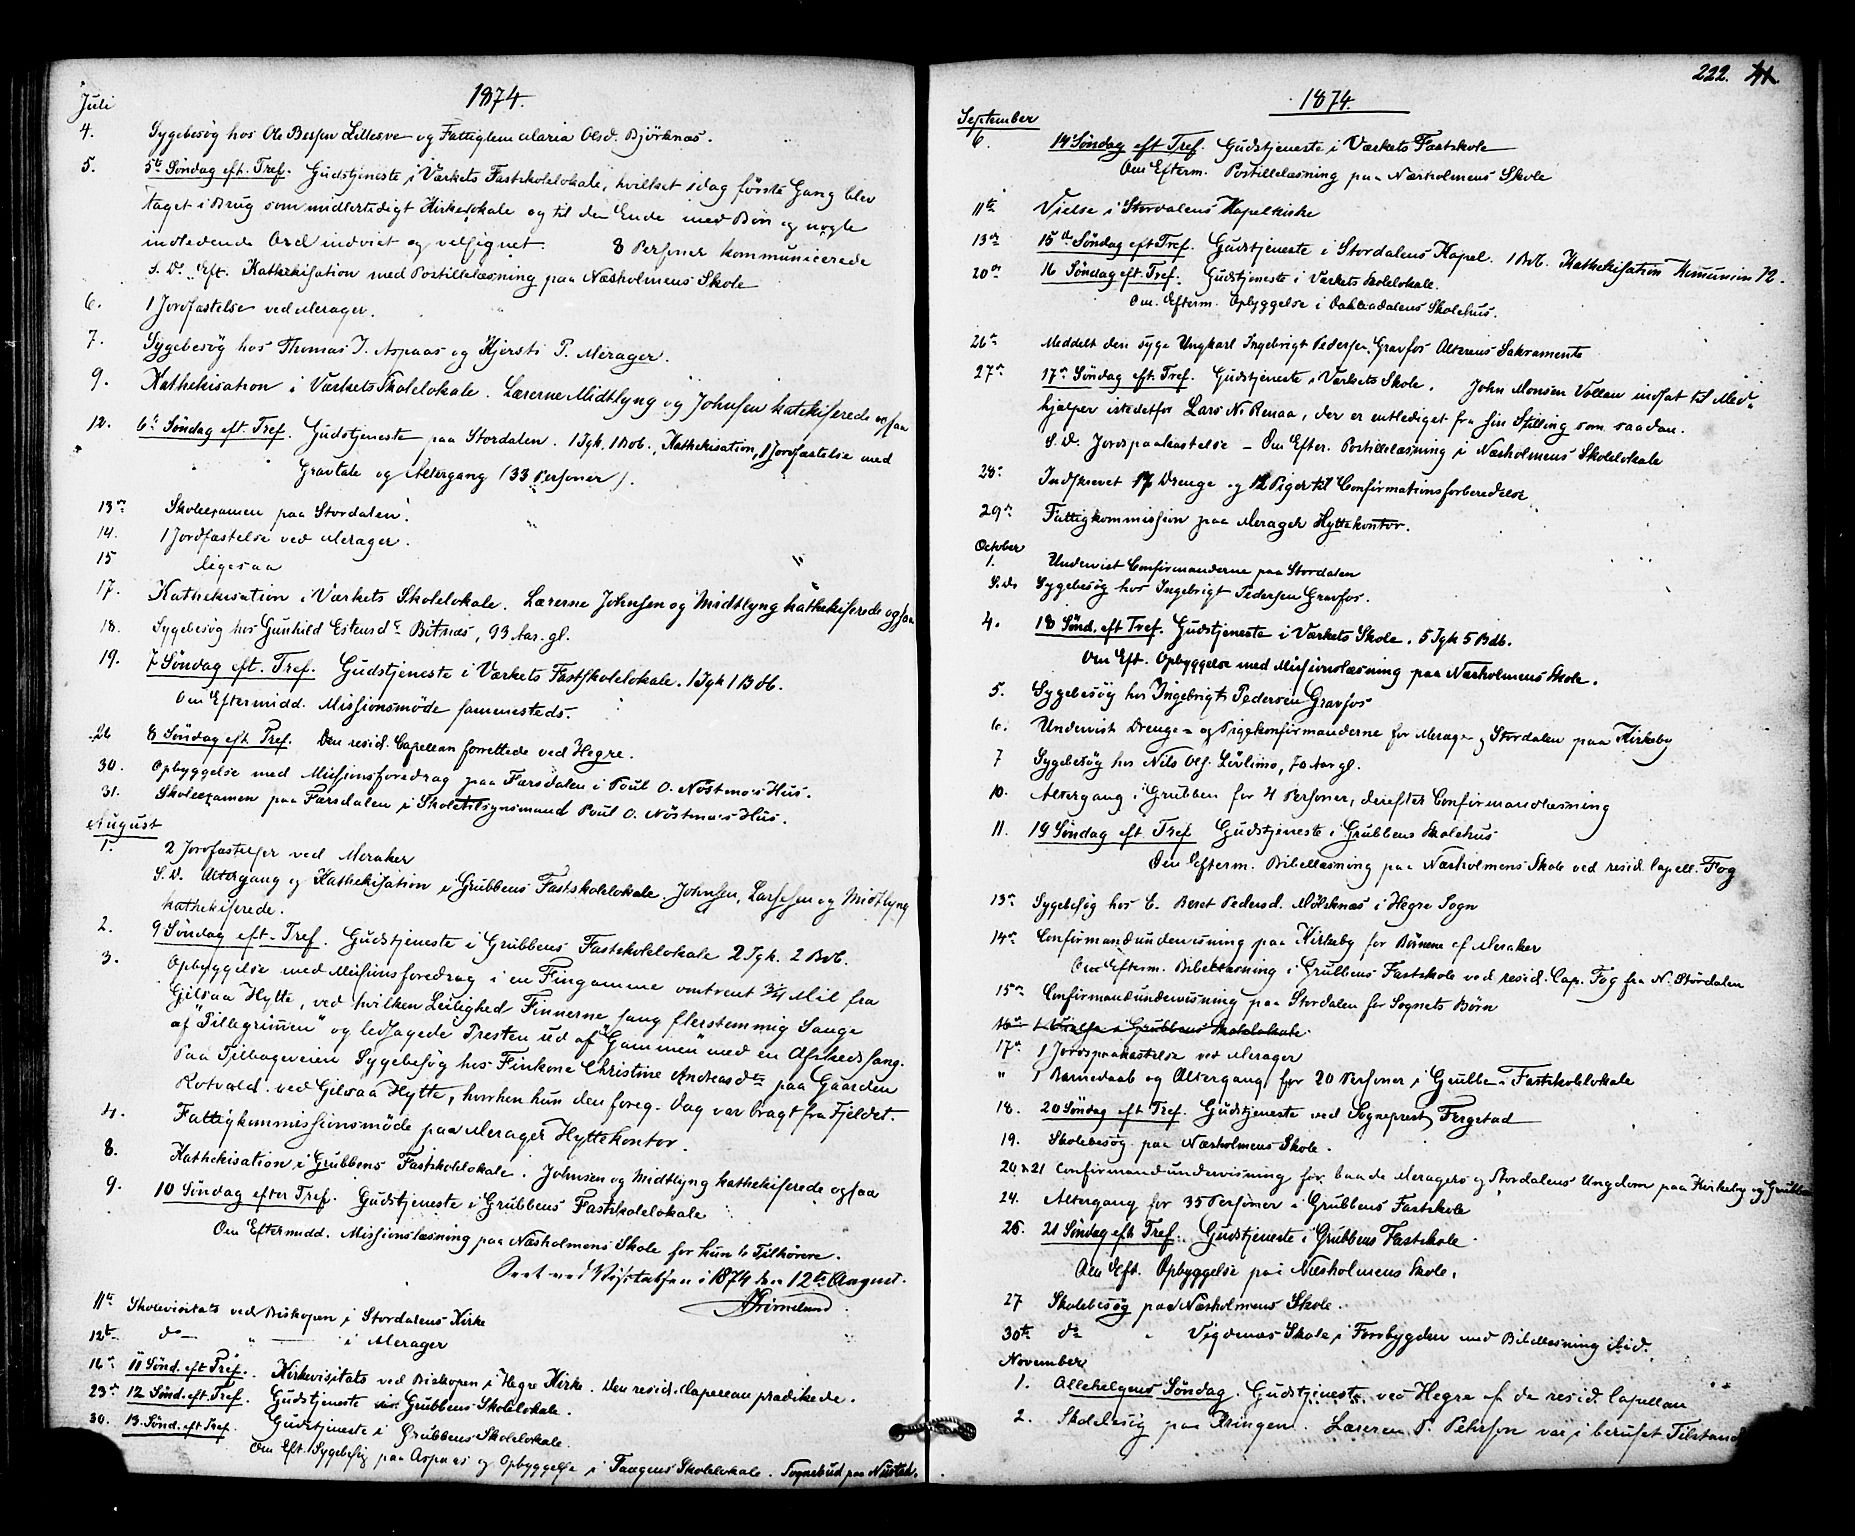 1874.
Juli
4. Sygebesøg hos Ole Bersen Lillesve og Fattiglem Maria Olsd. Bjørknæs.
5. 5te Søndag eft. Tref. Gudstjeneste i Værkets Fastskolelokale, hvilket idag første Gang blev
taget i Brug som midlertidigt Kirkelokale og til den Ende med Bøn og nogle
indledende Ord indviet og velsignet. 8 Personer kommunicerede
S. D. Eft. Kathekisation med Postillelæsning paa Næsholmens Skole
6. 1 Jordfæstelse ved Merager.
7. Sygebesøg hos Thomas J. Aspaas og Kjersti P. Merager.
9. Kathekisation i Værkets Skolelokale. Lærerne Midtlyng og Johnsen katekiserede ogsaa
12. 6te Søndag eft. Tref. Gudstjeneste paa Stordalen. 1 Igk. 1 Bdb., Kathekisation, 1 Jordfæstelse med
Gravtale og Altergang (33 Personer).
13de Skoleexamen paa Stordalen.
14. 1 Jordfæstelse ved Merager.
15 ligesaa
17. Kathekisation i Værkets Skolelokale. Lærerne Johnsen og Midtlyng kathekiserede ogsaa
18. Sygebesøg hos Gunhild Estensdr Bitnæs, 93 Aar gl.
19. 7 Søndag eft. Tref. Gudstjeneste i Værkets Fastskolelokale. 1 Igk 1 Bdb.
Om Eftermidd. Missionsmøde sammesteds.
26 8 Søndag eft Tref. Den resid. Capellan forrettede ved Hegre.
30. Opbyggelse med Missionsforedrag paa Færsdalen i Poul O. Nøstmo's Hus.
31. Skoleexamen paa Færsdalen i Skoletilsynsmand Poul O. Nøstmo's Hus.
August
1. 2 Jordfæstelser ved Meraker
S. D. Altergang og Kathekisation i Grubbens Fastskolelokale. Johnsen, Larssen og Midtlyng
kathekiserede.
2. 9 Søndag eft. Tref. Gudstjeneste i Grubbens Fastskolelokale 2 Igk. 2 Bdb.
3. Opbyggelse med Missionsforedrag i en Fingamme omtrent 3/4 Mil fra
Gilsaa Hytte, ved hvilken Leilighed Finnerne sang flerstemmig Sange
af "Pillegrimen" og ledsagede Presten ud af "Gammen" med en Afskedssang.
Paa Tilbageveien Sygebesøg hos Finkone Christine Andreasdtr paa Gaarden
Rotvold ved Gilsaa Hytte, hvorhen hun den foreg. Dag var bragt fra Fjeldet.
4. Fattigkommissionsmøde paa Merager Hyttekontor.
8. Kathekisation i Grubbens Fastskolelokale. Johnsen og Midtlyng kathekiserede ogsaa
9. 10 Søndag efter Tref. Gudstjeneste i Grubbens Fastskolelokale
Om Eftermidd. Missionslæsning paa Næsholmens Skole for kun 6 Tilhørere.
Seet ved Visitatsen i 1874 den 12te August.
Grimelund
11te Skolevisitats ved Biskopen i Stordalens Kirke
12te do — " — i Merager
16de 11 Sønd. eft Tref. Kirkevisitats ved Biskopen i Hegre Kirke. Den resid. Capellan prædikede.
23de 12 Sønd. eft. Tref. Gudstjeneste i Grubbens Skolelokale.
30. 13. Sønd. eft Tref. Gudstjeneste i Grubbens Skolelokale.
Om Eft. Sygebesøg paa Aspaas og Opbyggelse i Tangens Skolelokale. Sognebud paa Nustad.
222.
1874.
September
6. 14 Søndag eft Tref. Gudstjeneste i Værkets Fastskole
Om Efterm. Postillelæsning paa Næsholmens Skole
11te Vielse i Stordalens Kapelkirke
13de 15de Søndag eft Tref. Gudstjeneste i Stordalens Kapel. 1 Bdb. Kathekisation Komunion 12.
20de 16 Søndag eft. Tref. Gudstjeneste i Værkets Skolelokale.
Om. Efterm. Opbyggelse i Dalaadalens Skolehus.
26de Meddelt den syge Ungkarl Ingebrigt Pedersen Gravfos Alterens Sakramente
27de 17de Søndag eft. Tref. Gudstjeneste i Værkets Skole. John Monsen Vollan indsat til Med-
hjælper istedetfor Lars N. Renaa, der er entlediget fra sin Stilling som saadan.
S. D. Jordspaakastelse — Om Efter. Postillelæsning i Næsholmens Skolelokale
28de Indskrevet 17 Drenge og 12 Piger til Confirmationsforberedelse
29de Fattigkommission paa Merager Hyttekontor.
October
1. Undervist Confirmanderne paa Stordalen
S. D. Sygebesøg hos Ingebrigt Pedersen Gravfos.
4. 18 Sønd. eft Tref. Gudstjeneste i Værkets Skole. 5 Igk 5 Bdb.
Om Eft. Opbyggelse med Missionslæsning paa Næsholmens Skole.
5. Sygebesøg hos Ingebrigt Pedersen Gravfos
6. Undervist Drenge- og Pigekonfirmanderne for Merager og Stordalen paa Kirkeby
7 Sygebesøg hos Nils Ols. Livlimo, 70 Aar gl.
10. Altergang i Grubben for 4 Personer, derefter Confirmandlæsning
11. 19 Søndag eft. Tref Gudstjeneste i Grubbens Skolehus
Om Efterm. Bibellæsning paa Næsholmens Skole ved resid. Capell. Fog
13de Sygebesøg hos E. Beret Pedersd. Molsknæs i Hegre Sogn
14de Confirmandundervisning paa Kirkeby for Børnene af Meraker
Om Efterm. Bibellæsning i Grubbens Fastskole ved resid. Cap. Fog fra N. Stördalen
15de Confirmandundervisning paa Stordalen for Sognets Børn
16de 1 Vielse i Grubbens Skolelokale.
17de 1 Jordspaakastelse ved Merager
" 1 Barnedaab og Altergang for 20 Personer i Grubbens Fastskolelokale
18. 20 Søndag eft Tref. Gudstjeneste ved Sogneprest Fergstad
19. Skolebesøg paa Næsholmens Skole.
20 & 21 Confirmandundervisning for baade Meragers og Stordalens Ungdom paa Kirkeby og Grubben
24. Altergang for 35 Personer i Grubbens Fastskole
25. 21 Søndag eft Tref. Gudstjeneste i Grubbens Fastskole.
Om Eft. Opbyggelse paa Næsholmens Skole.
27 Skolebesøg paa Næsholmens Skole.
30te do " Vigdenæs Skole i Forrbygden med Bibellæsning ibid.
November
1. Allehelgens Søndag. Gudstjeneste ved Hegre af de resid. Capellan
2. Skolebesøg paa Ringen. Læreren P. Peterson var i beruset Tilstand